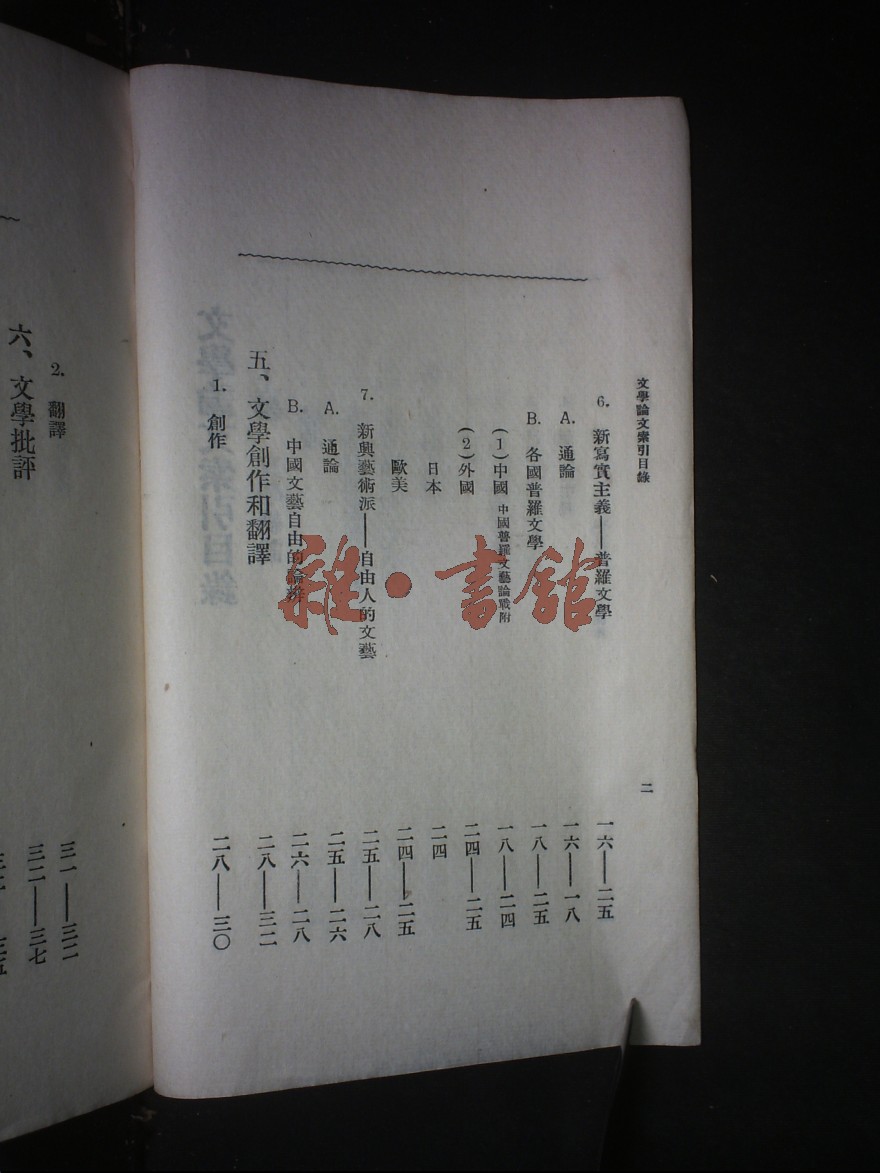 文學論文索引目錄
二
6. 新寫實主義——普羅文學 一六——二五
A. 通論 一六——一八
B. 各國普羅文學 一八——二五
(1)中國 中國普羅文藝論戰附 一八——二四
(2)外國 二四——二五
日本 二四
歐美 二四——二五
7. 新興藝術派——自由人的文藝 二五——二八
A. 通論 二五——二六
B. 中國文藝自由的論辨 二六——二八
五、文學創作和翻譯 二八——三二
1. 創作 二八——三〇
2. 翻譯 三一——三二
六、文學批評 三二——三七
雜·書館